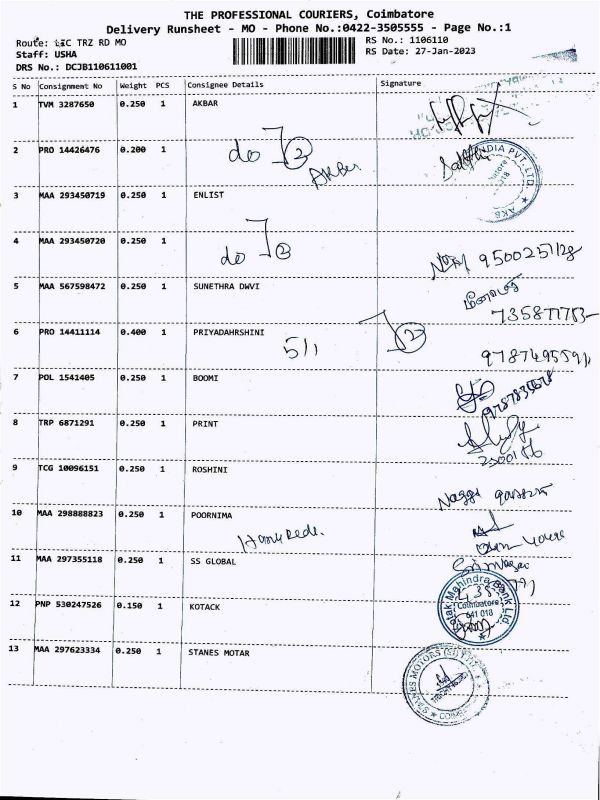 THE PROFESSIONAL COURIERS, Coimbatore
Delivery Runsheet - MO - Phone No.:0422-3505555 - Page No.:1
Route: LIC TRZ RD MO RS No.: 1106110
Staff: USHA RS Date: 27-Jan-2023
DRS No.: DCJB110611001
S No Consignment No Weight PCS Consignee Details Signature
1 TVM 3287650 0.250 1 AKBAR
2 PRO 14426476 0.200 1 do 2
Akber
INDIA PVT. LTD.
3 MAA 293450719 0.250 1 ENLIST
4 MAA 293450720 0.250 1 do 2
9500251128
5 MAA 567598472 0.250 1 SUNETHRA DWVI
6 PRO 14411114 0.400 1 PRIYADAHRSHINI
5/1 2
7 POL 1541405 0.250 1 BOOMI
8 TRP 6871291 0.250 1 PRINT
9 TCG 10096151 0.250 1 ROSHINI
10 MAA 298888823 0.250 1 POORNIMA
11 MAA 297355118 0.250 1 SS GLOBAL
12 PNP 530247526 0.150 1 KOTACK
Kotak Mahindra Bank Ltd.
Coimbatore
641 018
13 MAA 297623334 0.250 1 STANES MOTAR
STANES MOTORS